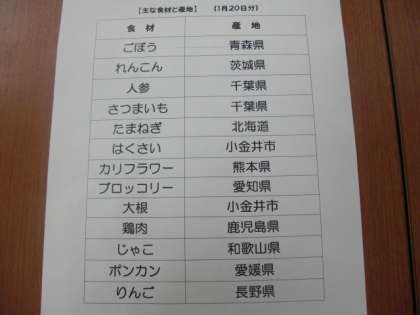 [主な食材と産地] (1月20日分)
食 材 産 地
ごぼう 青森県
れんこん 茨城県
人参 千葉県
さつまいも 千葉県
たまねぎ 北海道
はくさい 小金井市
カリフラワー 熊本県
ブロッコリー 愛知県
大根 小金井市
鶏肉 鹿児島県
じゃこ 和歌山県
ポンカン 愛媛県
りんご 長野県